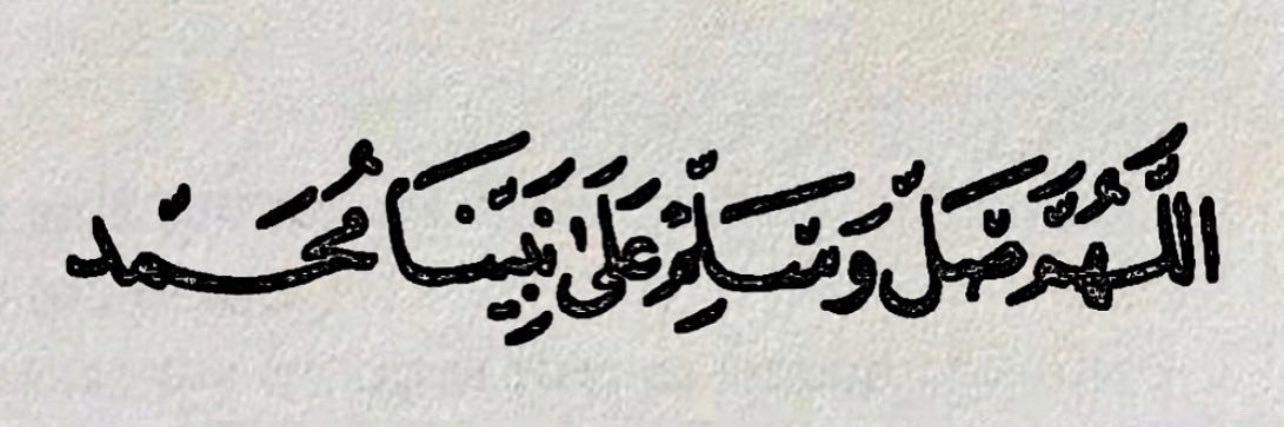 اللَّهُمَّ صَلِّ وَسَلِّمْ عَلَىٰ نَبِيِّنَا مُحَمَّد